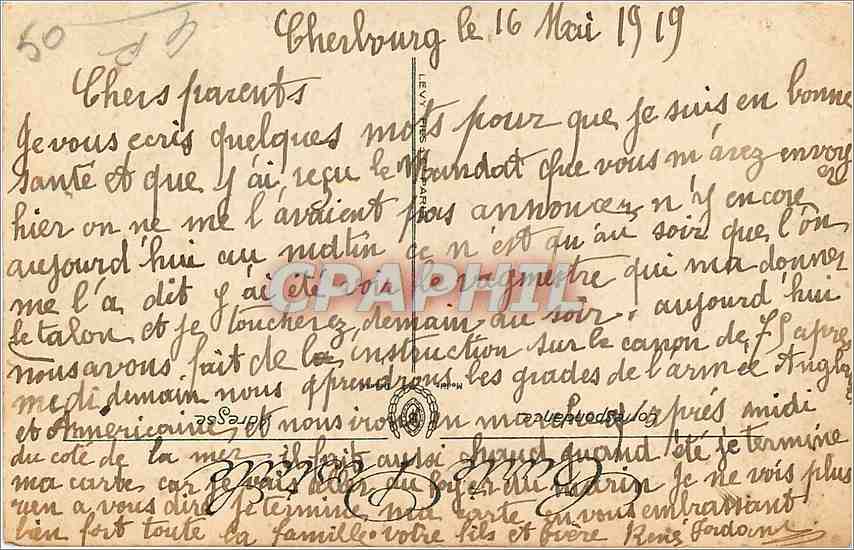 50
Cherbourg le 16 Mai 1919
Chers parents
Je vous ecris quelques mots pour que je suis en bonne
santé et que y'ai reçu le Mandat que vous m'avez envoy
er
hier on ne me l'avaient pas annoncer n'y encore
aujourd'hui au matin ce n'est qu'au soir que l'on
me l'a dit y'ai été voir le vagmestre qui ma donner
le talon et je toucherez demain au soir. aujourd'hui
nous avons fait de la instruction sur le canon de 75 apres
medi demain nous prendrons les grades de l'armée Angla
et Américaine et nous irons en marche l'aprés midi
du coté de la mer il fait aussi chaud quand été je termine
ma carte car je vais aller du foyer du marin je ne vois plus
rien a vous dire je termine ma carte en vous embrassant
bien fort toute la famille votre fils et frère René Jordan
CPAPHIL
LEVY FILS PARIS
Correspondance
Adresse
Carte Postale